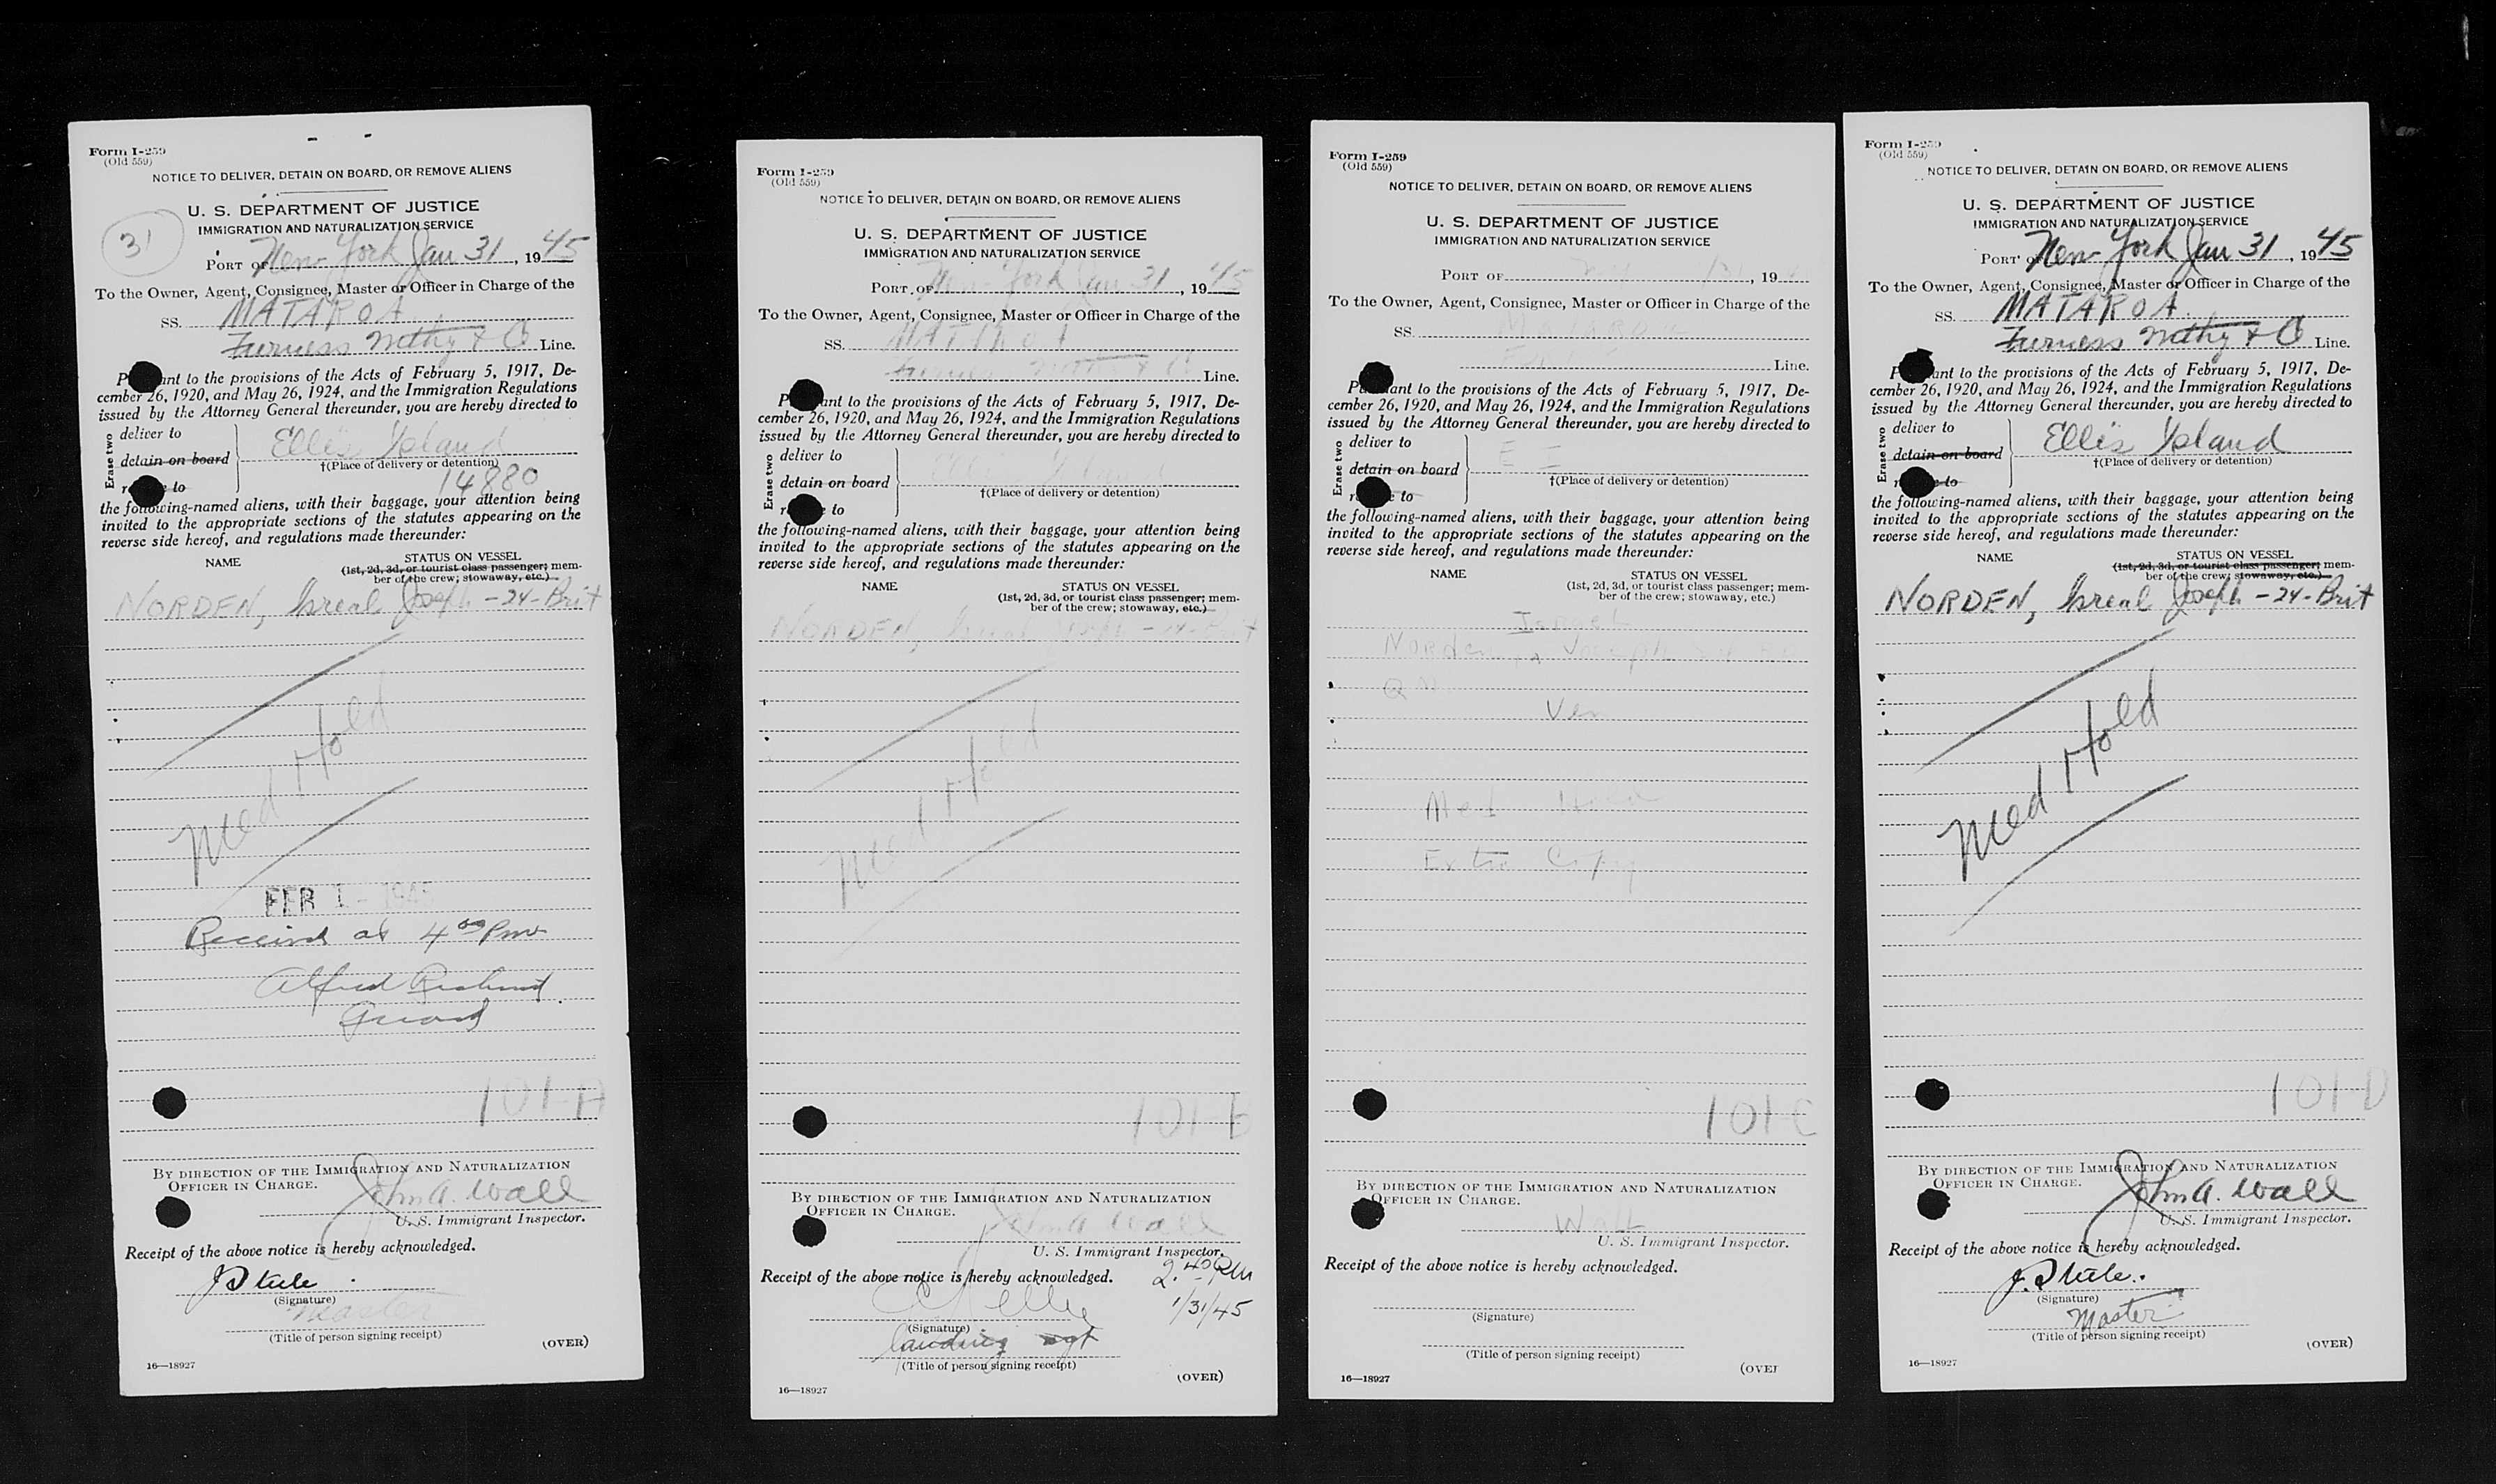 Form I-259
(Old 559)
NOTICE TO DELIVER, DETAIN ON BOARD, OR REMOVE ALIENS
U. S. DEPARTMENT OF JUSTICE
IMMIGRATION AND NATURALIZATION SERVICE
31
PORT OF New York Jan 31, 1945
To the Owner, Agent, Consignee, Master or Officer in Charge of the
SS. MATAROA
Furness Withy & Co Line.
P ant to the provisions of the Acts of February 5, 1917, De-
cember 26, 1920, and May 26, 1924, and the Immigration Regulations
issued by the Attorney General thereunder, you are hereby directed to
Erase two
deliver to
detain on board
to
Ellis Island
†(Place of delivery or detention)
14880
the following-named aliens, with their baggage, your attention being
invited to the appropriate sections of the statutes appearing on the
reverse side hereof, and regulations made thereunder:
NAME
STATUS ON VESSEL
(1st, 2d, 3d, or tourist class passenger; mem-
ber of the crew; stowaway, etc.)
NORDEN, Isreal Joseph - 24 - Brit
Med Hold
FEB 1 - 1945
Received at 4 00 Pm
Alfred
Guard
101-A
BY DIRECTION OF THE IMMIGRATION AND NATURALIZATION
OFFICER IN CHARGE.
John A. Wall
U. S. Immigrant Inspector.
Receipt of the above notice is hereby acknowledged.
J Steele
(Signature)
Master
(Title of person signing receipt)
(OVER)
16—18927
Form I-259
(Old 559)
NOTICE TO DELIVER, DETAIN ON BOARD, OR REMOVE ALIENS
U. S. DEPARTMENT OF JUSTICE
IMMIGRATION AND NATURALIZATION SERVICE
PORT OF New York Jan 31, 1945
To the Owner, Agent, Consignee, Master or Officer in Charge of the
SS. MATAROA
Furness Withy & Co Line.
P ant to the provisions of the Acts of February 5, 1917, De-
cember 26, 1920, and May 26, 1924, and the Immigration Regulations
issued by the Attorney General thereunder, you are hereby directed to
Erase two
deliver to
detain on board
to
Ellis Island
†(Place of delivery or detention)
the following-named aliens, with their baggage, your attention being
invited to the appropriate sections of the statutes appearing on the
reverse side hereof, and regulations made thereunder:
NAME
STATUS ON VESSEL
(1st, 2d, 3d, or tourist class passenger; mem-
ber of the crew; stowaway, etc.)
NORDEN, Isreal Joseph - 24 - Brit
Med Hold
101-B
BY DIRECTION OF THE IMMIGRATION AND NATURALIZATION
OFFICER IN CHARGE.
John A. Wall
U. S. Immigrant Inspector.
Receipt of the above notice is hereby acknowledged.
2.40 PM
1/31/45
(Signature)
Landing agt
(Title of person signing receipt)
(OVER)
16—18927
Form I-259
(Old 559)
NOTICE TO DELIVER, DETAIN ON BOARD, OR REMOVE ALIENS
U. S. DEPARTMENT OF JUSTICE
IMMIGRATION AND NATURALIZATION SERVICE
PORT OF , 19
To the Owner, Agent, Consignee, Master or Officer in Charge of the
SS. Mataroa
Line.
P ant to the provisions of the Acts of February 5, 1917, De-
cember 26, 1920, and May 26, 1924, and the Immigration Regulations
issued by the Attorney General thereunder, you are hereby directed to
Erase two
deliver to
detain on board
to
E I
†(Place of delivery or detention)
the following-named aliens, with their baggage, your attention being
invited to the appropriate sections of the statutes appearing on the
reverse side hereof, and regulations made thereunder:
NAME
STATUS ON VESSEL
(1st, 2d, 3d, or tourist class passenger; mem-
ber of the crew; stowaway, etc.)
Israel
Norden, Joseph 24
Ver
Med Hold
Extra Copy
101 C
BY DIRECTION OF THE IMMIGRATION AND NATURALIZATION
OFFICER IN CHARGE.
Wall
U. S. Immigrant Inspector.
Receipt of the above notice is hereby acknowledged.
(Signature)
(Title of person signing receipt)
(OVER
16—18927
Form I-259
(Old 559)
NOTICE TO DELIVER, DETAIN ON BOARD, OR REMOVE ALIENS
U. S. DEPARTMENT OF JUSTICE
IMMIGRATION AND NATURALIZATION SERVICE
PORT OF New York Jan 31, 1945
To the Owner, Agent, Consignee, Master or Officer in Charge of the
SS. MATAROA
Furness Withy & Co Line.
P ant to the provisions of the Acts of February 5, 1917, De-
cember 26, 1920, and May 26, 1924, and the Immigration Regulations
issued by the Attorney General thereunder, you are hereby directed to
Erase two
deliver to
detain on board
to
Ellis Island
†(Place of delivery or detention)
the following-named aliens, with their baggage, your attention being
invited to the appropriate sections of the statutes appearing on the
reverse side hereof, and regulations made thereunder:
NAME
STATUS ON VESSEL
(1st, 2d, 3d, or tourist class passenger; mem-
ber of the crew; stowaway, etc.)
NORDEN, Isreal Joseph - 24 - Brit
Med Hold
101-D
BY DIRECTION OF THE IMMIGRATION AND NATURALIZATION
OFFICER IN CHARGE.
John A. Wall
U. S. Immigrant Inspector.
Receipt of the above notice is hereby acknowledged.
J. Steele.
(Signature)
Master
(Title of person signing receipt)
(OVER)
16—18927